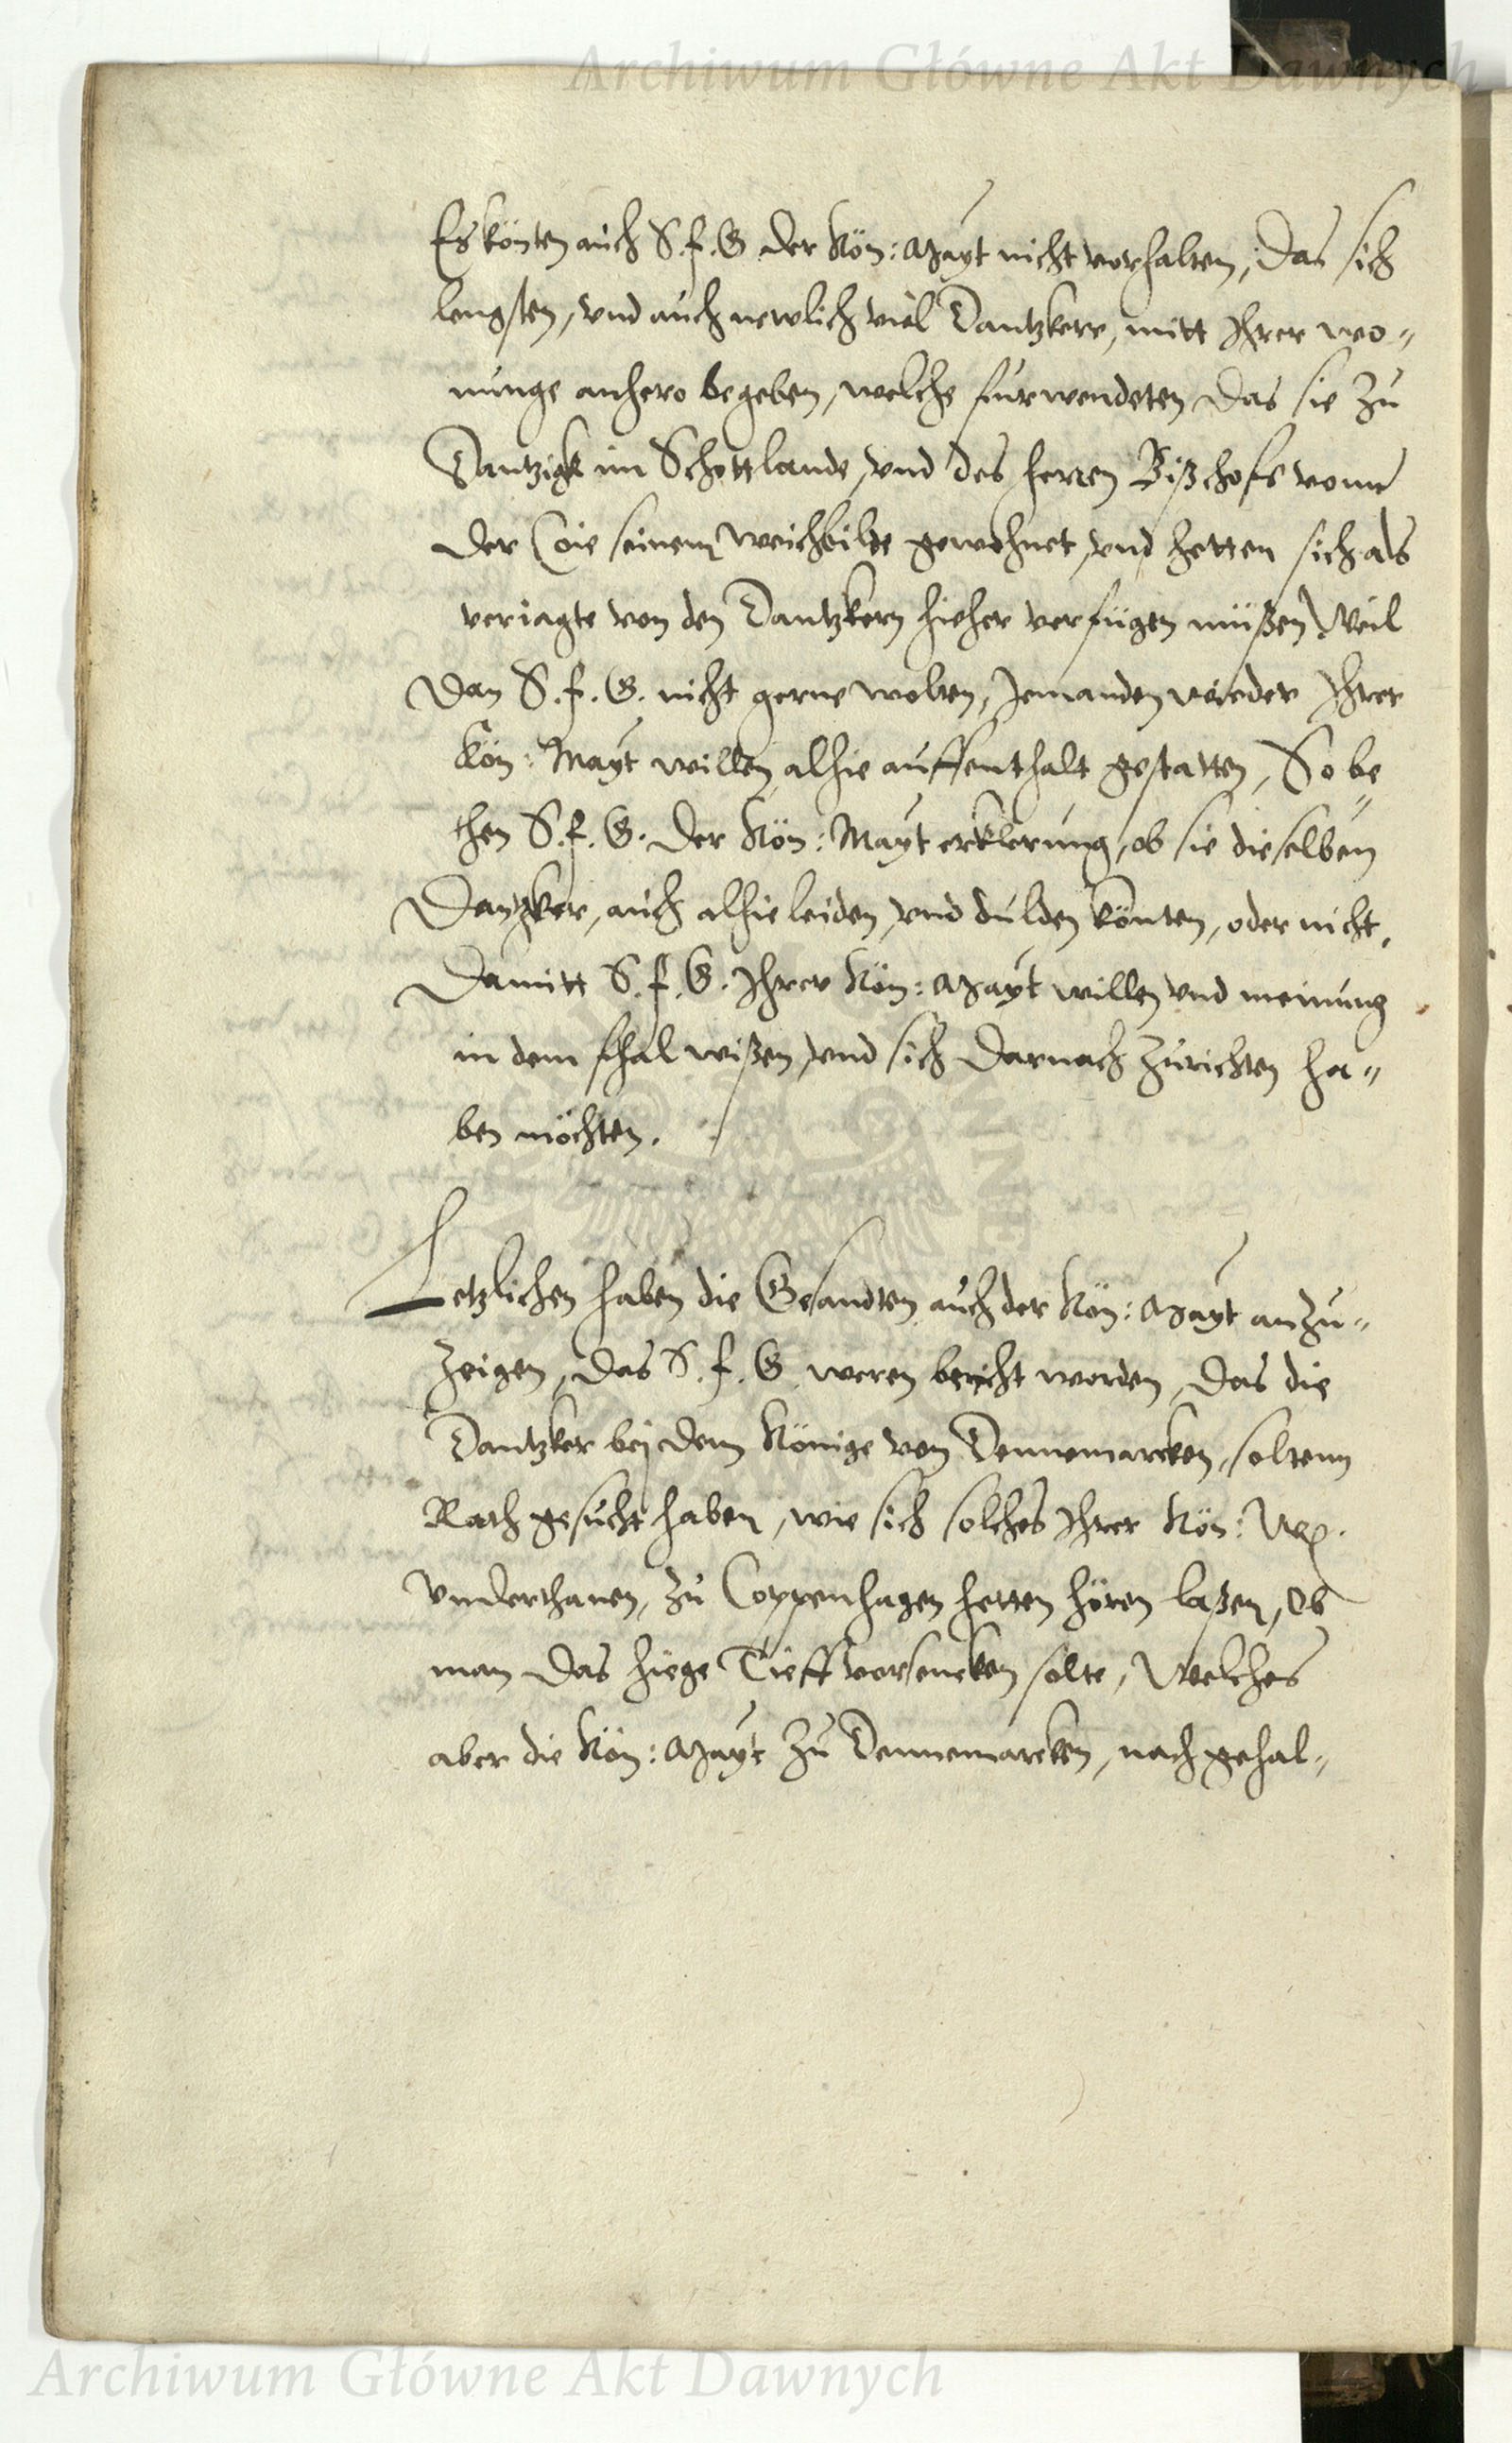 Archiwum Główne Akt Dawnych
Es könten auch S. f. G der Kön: Mayt nicht vorhalten, Das sich
lengsten, vnd auch newlich viel Dantzkere, mitt Ihrer wo-
nunge anhero begeben, welche furwendeten das sie zu
Dantzigk im Schottlande, vnd des herren Bischofs vonn
der Coie seinem weichbilde gewohnet, vnd hetten sich als
veriagte von den Dantzkern hieher verfügen müßen, Weil
dan S. f. G. nicht gerne wolten, Jemanden wieder Ihrer
Kön: Mayt willen alhie auffenthalt gestatten, So be-
then S. f. G. der Kön: Mayt erklerung, ob sie dieselben
Dantzker, auch alhie leiden, vnd dulden könten, oder nicht,
Damitt S. f. G. Ihrer Kön: Mayt willen vnd meinung
in dem fhal wißen, vnd sich darnach zurichten ha-
ben möchten.
Letzlichen haben die Gesandten auch der Kön: Mayt anzu-
zeigen, das S. f. G. weren bericht worden, das die
Dantzker bei dem Könige von Dennemarcken, soltenn
Rath gesucht haben, wie sich solches Ihrer Kön: W.
Vnderthanen, zu Coppenhagen hetten hören laßen, Ob
man das hiege Tieff vorsencken solte, Welches
aber die Kön: Mayt zu Dennemarcken, nach gehal-
Archiwum Główne Akt Dawnych